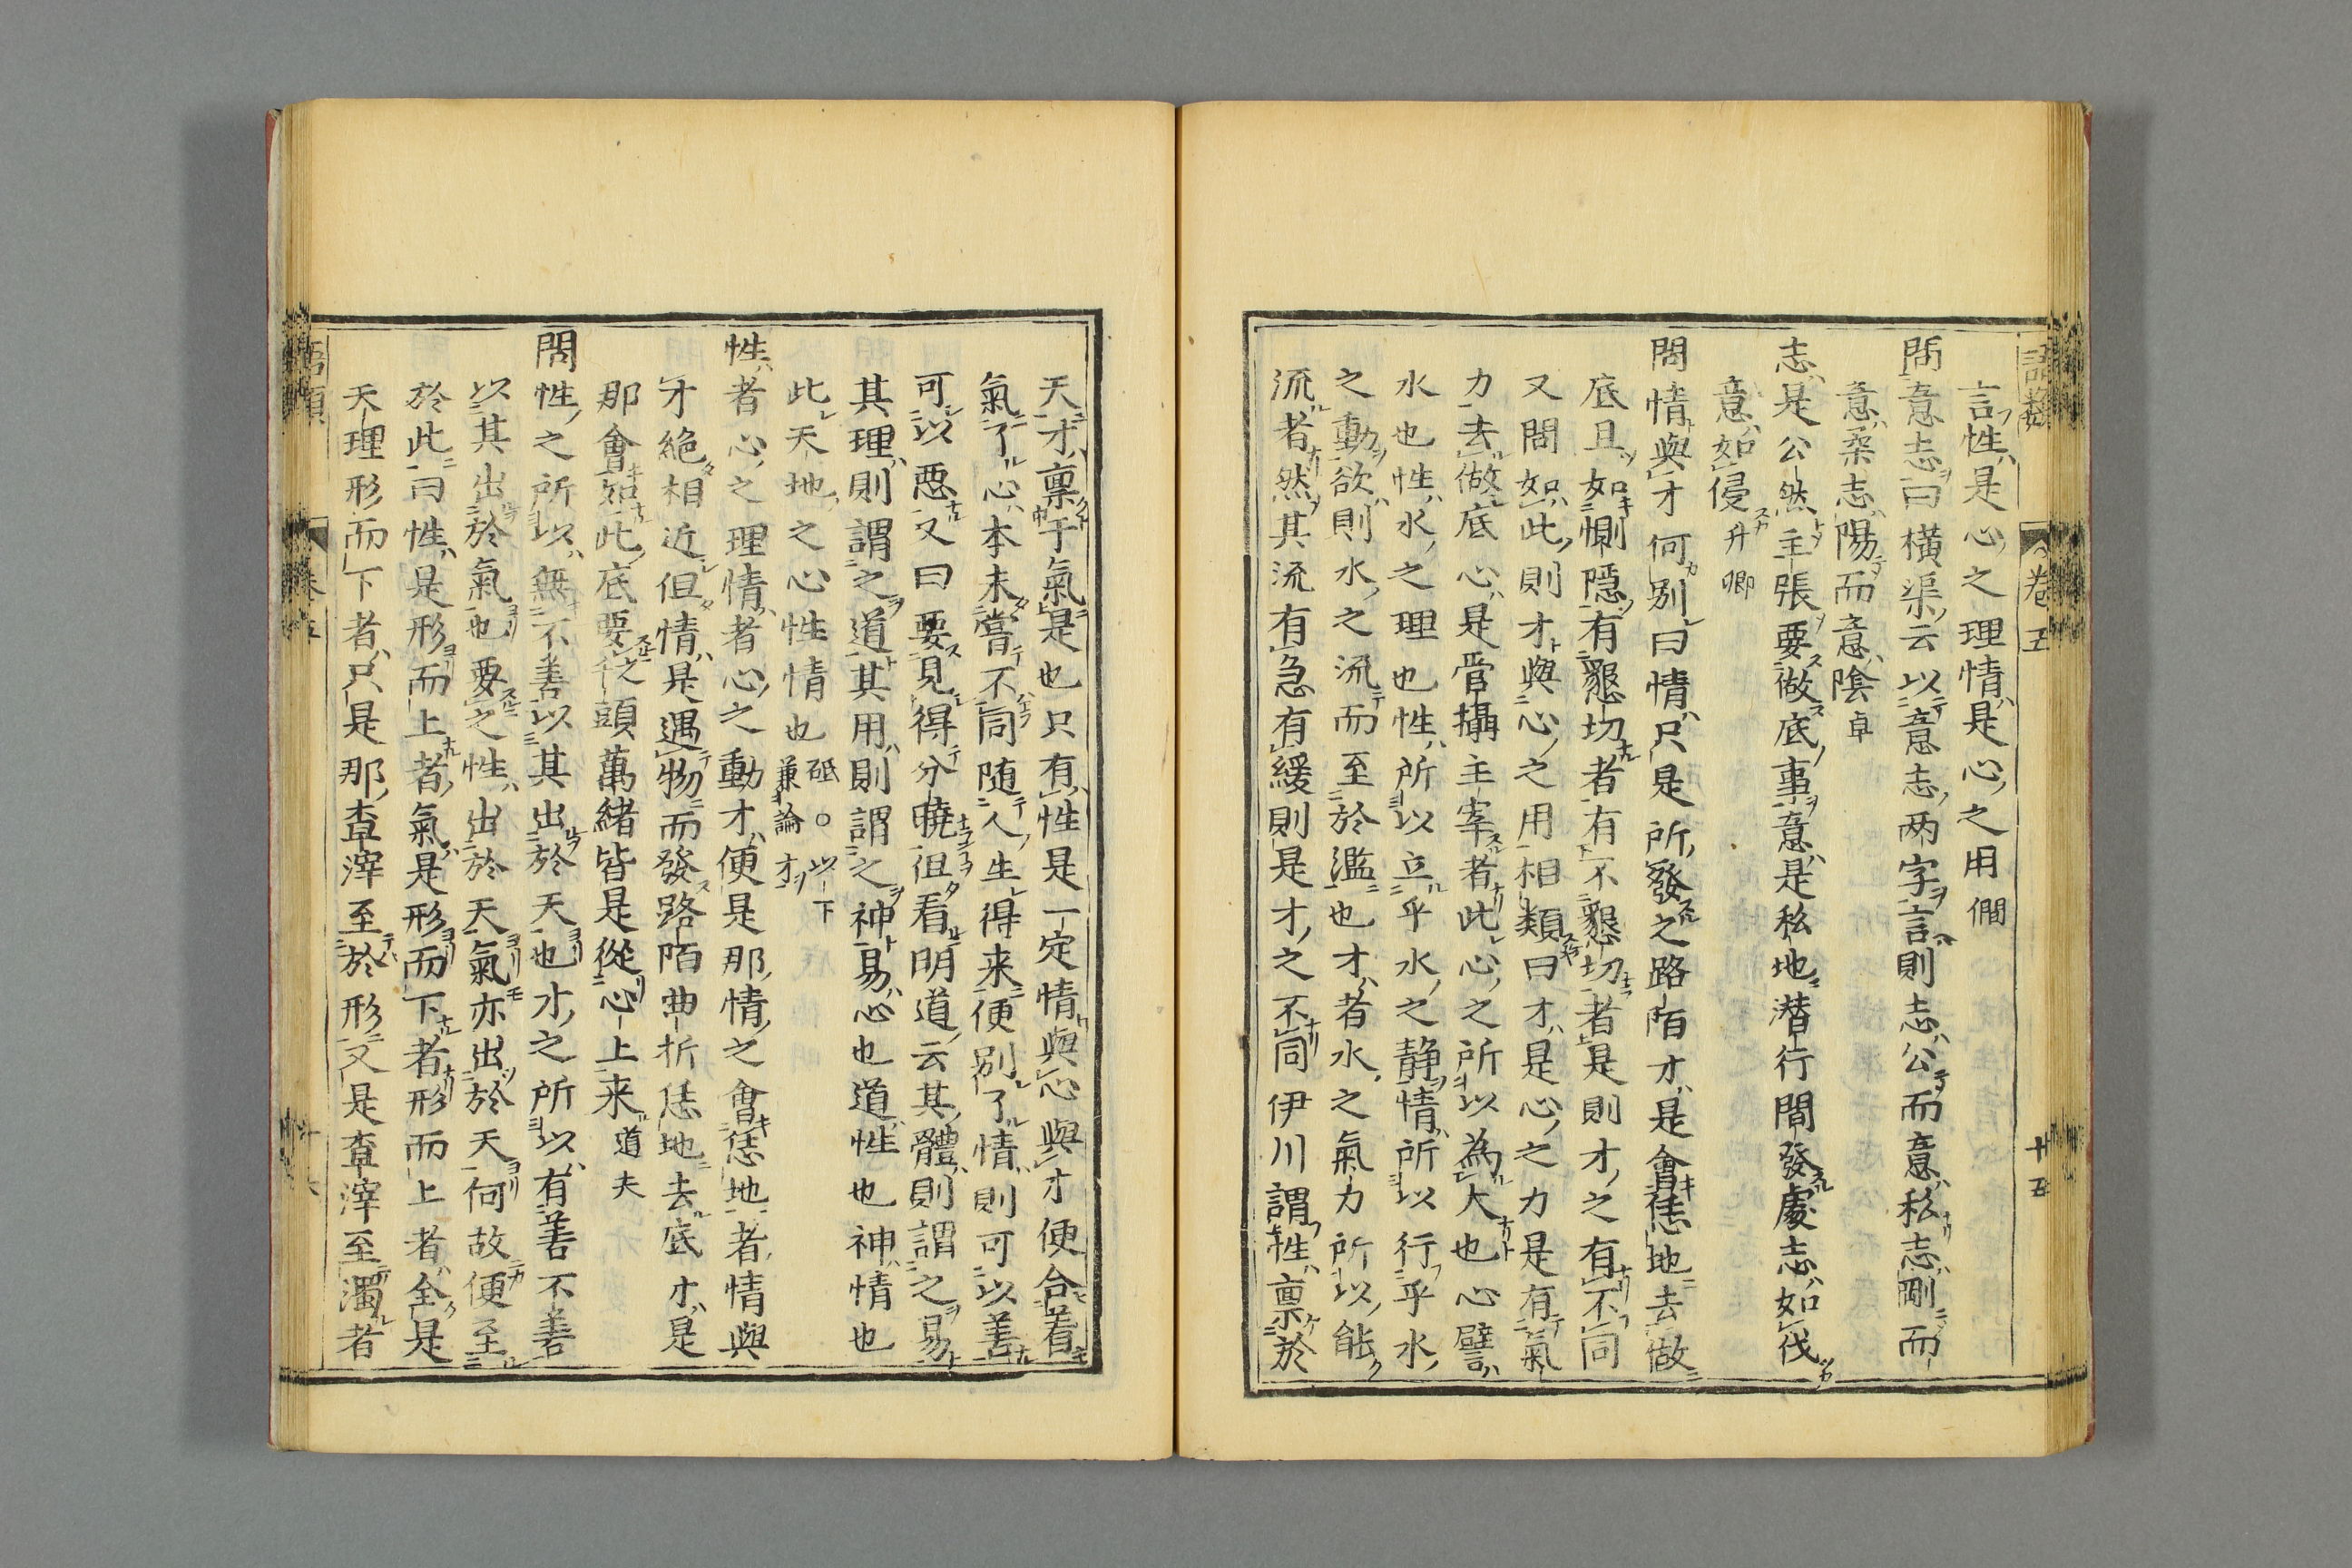 語類 卷五 廿五
言性是心之理情是心之用僩
問意志曰橫渠云以意志两字言則志公而意私志剛而
意柔志陽而意陰卓
志是公然主張要做底事意是私地潜行間發處志如伐
意如侵升卿
問情與才何別曰情只是所發之路陌才是會恁地去做
底且如惻隱有懇切者有不懇切者是則才之有不同
又問如此則才與心之用相類曰才是心之力是有氣
力去做底心是管攝主宰者此心之所以為大也心譬
水也性水之理也性所以立乎水之靜情所以行乎水
之動欲則水之流而至於濫也才者水之氣力所以能
流者然其流有急有緩則是才之不同伊川謂性禀於
天才禀于氣是也只有性是一定情與心與才便合着
氣了心本未嘗不同随人生得来便別了情則可以善
可以惡又曰要見得分曉但看明道云其體則謂之易
其理則謂之道其用則謂之神易心也道性也神情也
此天地之心性情也砥○以下兼論才
性者心之理情者心之動才便是那情之會恁地者情與
才絶相近但情是遇物而發路陌曲折恁地去底才是
那會如此底要之千頭萬緒皆是從心上来道夫
問性之所以無不善以其出於天也才之所以有善不善
以其出於氣也要之性出於天氣亦出於天何故便至
於此曰性是形而上者氣是形而下者形而上者全是
天理形而下者只是那査滓至於形又是査滓至濁者